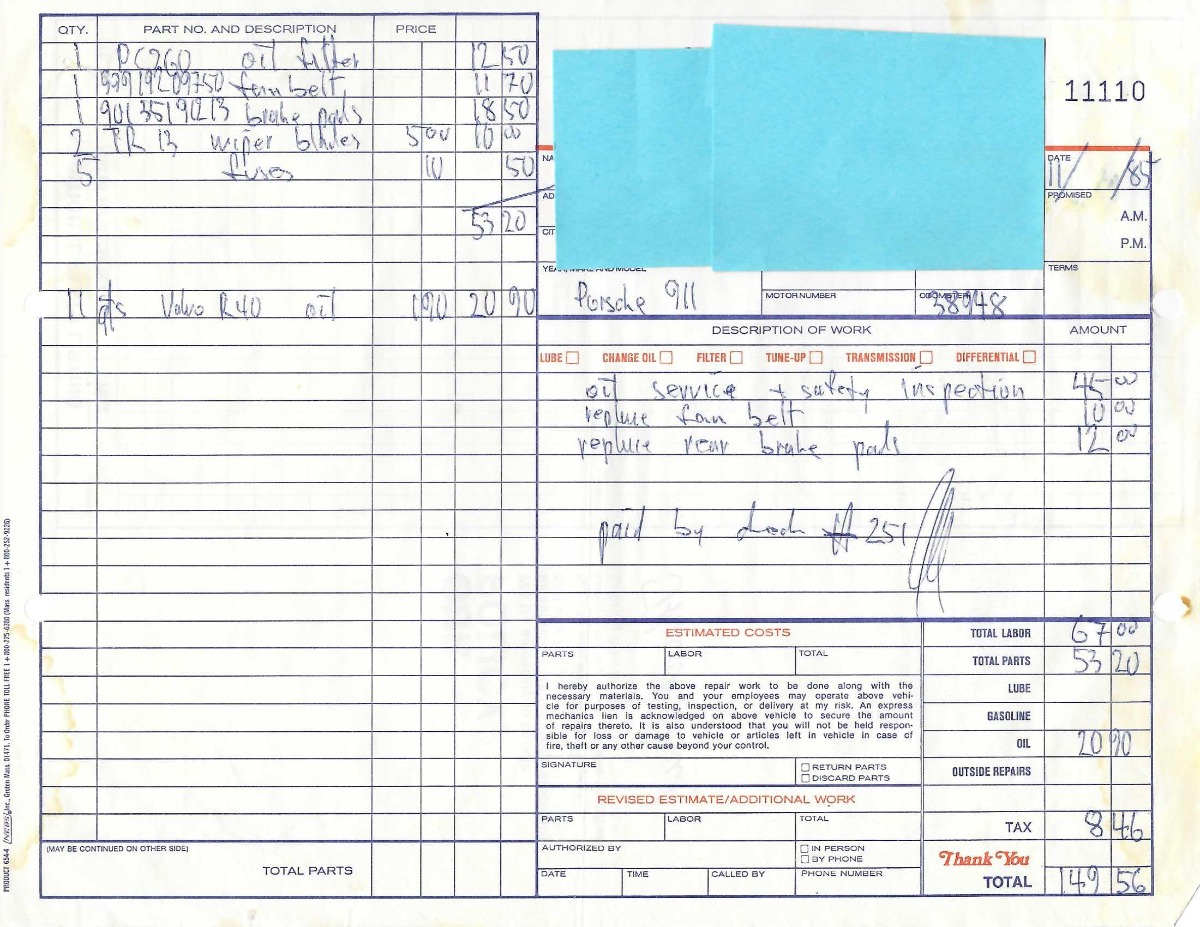 QTY. PART NO. AND DESCRIPTION PRICE
1 PC260 oil filter 12 50
1 99919209750 fan belt 11 70
1 90135191213 brake pads 18 50
2 TR 13 wiper blades 5 00 10 00
5 fuses 10 50
53 20
11 qts Volvo R40 oil 1 90 20 90
(MAY BE CONTINUED ON OTHER SIDE)
TOTAL PARTS
11110
NA
DATE
11/ /85
AD
PROMISED
A.M.
CIT
P.M.
YEAR, MAKE AND MODEL
TERMS
Porsche 911
MOTOR NUMBER
ODOMETER
58948
DESCRIPTION OF WORK AMOUNT
LUBE CHANGE OIL FILTER TUNE-UP TRANSMISSION DIFFERENTIAL
oil service + safety inspection 45 00
replace fan belt 10 00
replace rear brake pads 12 00
paid by check # 251
ESTIMATED COSTS
PARTS LABOR TOTAL
I hereby authorize the above repair work to be done along with the
necessary materials. You and your employees may operate above vehi-
cle for purposes of testing, inspection, or delivery at my risk. An express
mechanics lien is acknowledged on above vehicle to secure the amount
of repairs thereto. It is also understood that you will not be held respon-
sible for loss or damage to vehicle or articles left in vehicle in case of
fire, theft or any other cause beyond your control.
SIGNATURE
RETURN PARTS
DISCARD PARTS
REVISED ESTIMATE/ADDITIONAL WORK
PARTS LABOR TOTAL
AUTHORIZED BY
IN PERSON
BY PHONE
DATE TIME CALLED BY PHONE NUMBER
TOTAL LABOR 67 00
TOTAL PARTS 53 20
LUBE
GASOLINE
OIL 20 90
OUTSIDE REPAIRS
TAX 8 46
Thank You
TOTAL 149 56
PRODUCT 654-4 Inc., Groton Mass. 01471. To Order PHONE TOLL FREE 1 + 800-225-6380 (Mass. residents 1 + 800-252-9226)